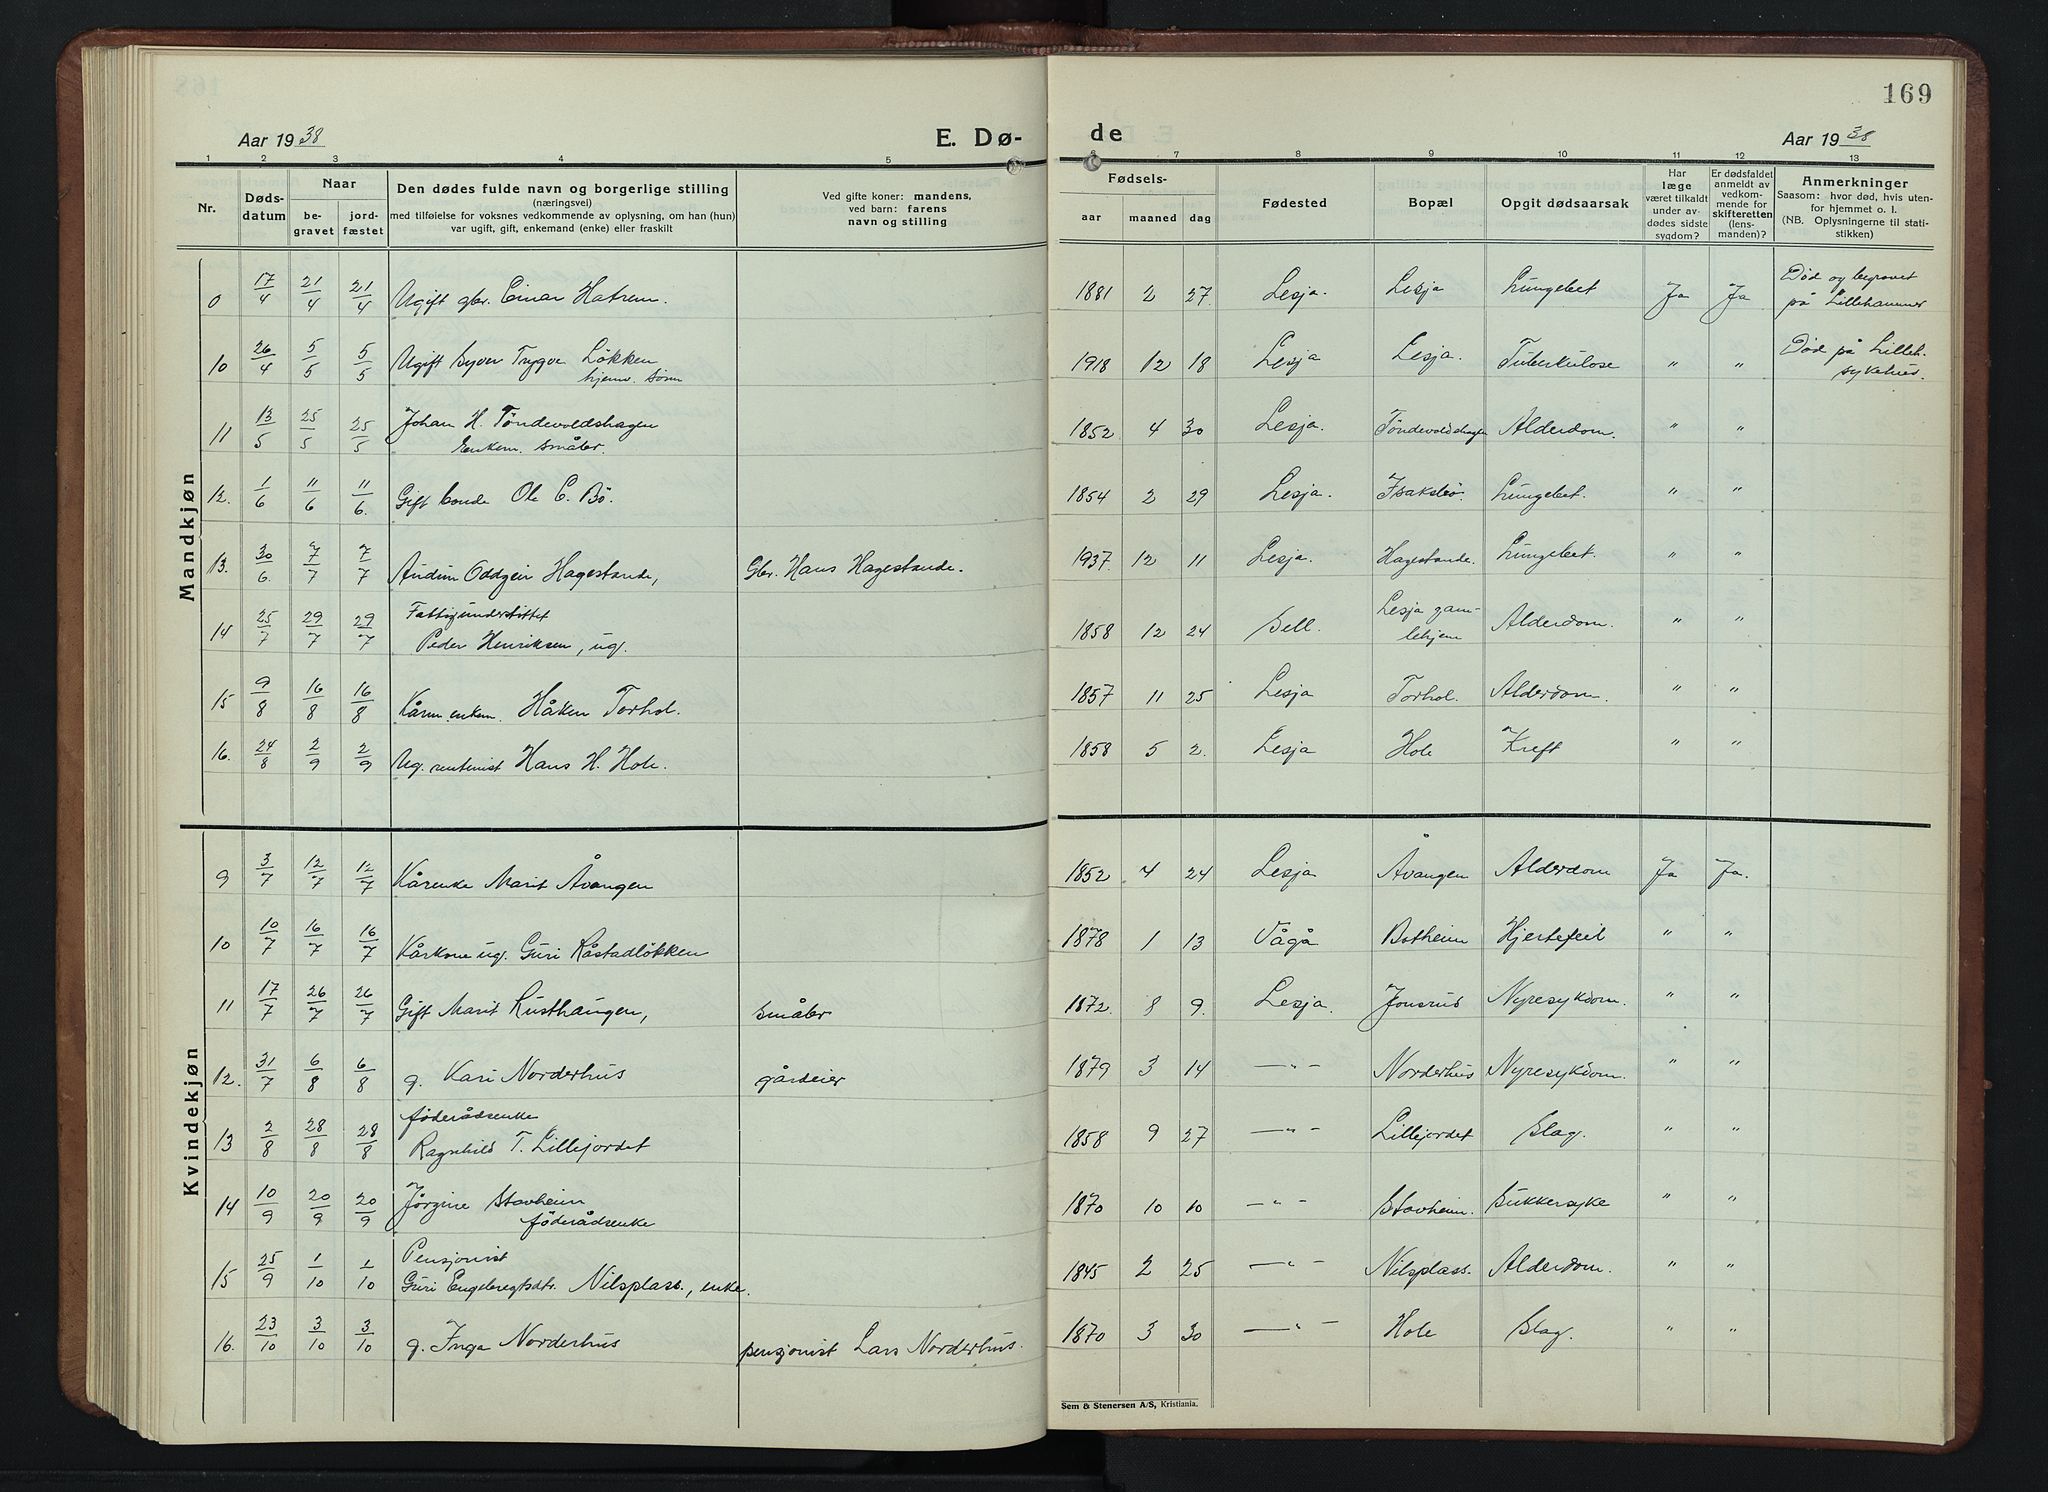 169
Aar 1938
E. Dø-
de
Aar 1938
1 2 3 4 5 6 7 8 9 10 11 12 13
Nr.
Døds-
datum
Naar
be-
gravet
jord-
fæstet
Den dødes fulde navn og borgerlige stilling
(næringsvei)
med tilføielse for voksnes vedkommende av oplysning, om han (hun)
var ugift, gift, enkemand (enke) eller fraskilt
Ved gifte koner: mandens,
ved barn: farens
navn og stilling
Fødsels-
aar maaned dag
Fødested
Bopæl
Opgit dødsaarsak
Har
læge
været tilkaldt
under av-
dødes sidste
sygdom?
Er dødsfaldet
anmeldt av
vedkom-
mende for
skifteretten
(lens-
manden)?
Anmerkninger
Saasom: hvor død, hvis uten-
for hjemmet o. l.
(NB. Oplysningerne til stati-
stikken)
Mandkjøn
0 17/4 21/4 21/4 Ugift gbr. Einar Hatrem. 1881 2 27 Lesja. Lesja Lungebet Ja Ja Død og begravet
på Lillehammer
10 26/4 5/5 5/5 Ugift Syver Trygve Løkken 1918 12 18 Lesja Lesja. Tuberkulose " " Død på Lilleh.
hjemv. sønn sykehus.
11 13/5 25/5 25/5 Johan H. Töndevoldshagen 1852 4 30 Lesja. Töndevoldshagen Alderdom. " "
Enkem. småbr.
12. 1/6 11/6 11/6. Gift bonde Ole C. Bö. 1854 2 29 Lesja. Isaksbö. Lungebet. " "
13. 30/6. 7/7 7/7 Audun Oddgeir Hagestande, Gbr. Hans Hagestande. 1937. 12 11 Lesja. Hagestande. Lungebet. " "
14 25/7 29/7 29/7 Fattigunderstöttet
Peder Henriksen, ug. 1858 12 24 Sell. Lesja gam-
lehjem Alderdom. " "
15 9/8 16/8 16/8 Kårm. enkem. Håken Torhol. 1857 11 25 Lesja Torhol. Alderdom. " "
16. 24/8 2/9 2/9 Ug. rentenist Hans H. Hole. 1858 5 2. Lesja Hole Kreft " "
Kvindekjøn
9 3/7 12/7 12/7 Kårenke Marit Åvangen 1852 4 24 Lesja Åvangen Alderdom Ja Ja.
10 10/7 16/7 16/7 Kårkone ug. Guri Råstadlökken 1878 1 13 Vågå Botheim Hjertefeil " "
11 17/7 26/7 26/7 Gift Marit Rusthaugen, småbr 1872. 8 9. Lesja. Jonsrud Nyresykdom. " "
12. 31/7 6/8 6/8 g. Kari Norderhus gårdeier 1879 3 14 — " - Norderhus Nyresykdom. " "
13 2/8 28/8 28/8 føderådsenke
Ragnhild T. Lillejordet 1858 9 27 — " - Lillejordet Slag. " "
14 10/9 20/9 20/9 Jörgine Stavheim 1870 10 10 — " - Stavheim. Sukkersyke " "
føderådsenke
15 25/9 1/10 1/10 Pensjonist
Guri Engebregtsdtr. Nilsplass., enke. 1845 2 25 — " - Nilsplass. Alderdom. " "
16. 23/10 3/10 3/10 g. Inga Norderhus pensjonist Lars Norderhus. 1870 3 30 — " - Hole Slag. " "
Sem & Stenersen A/S, Kristiania.